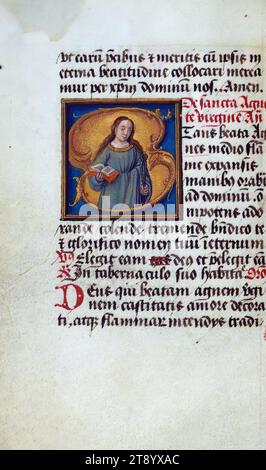 Ut earum precibus & meritis cum ipsis in
eterna beatitudine collocari merea
mur per xpm dominum nos. Amen.
De sancta Agne
te virgine An
Tans beata Ag
nes medio flam
me expansis
manibus orabat
ad dominum o
mnipotens ado
rande colende tremende bndico te
& glorifico nomen tuum ineternum
Elegit eam deus et pelegit eam
In tabernaculo suo habita Oro
Deus qui beatam agnem virgi
nem castitatis amore decora
ti, atque flammar incendys tradi
alamy
2T8YXAC